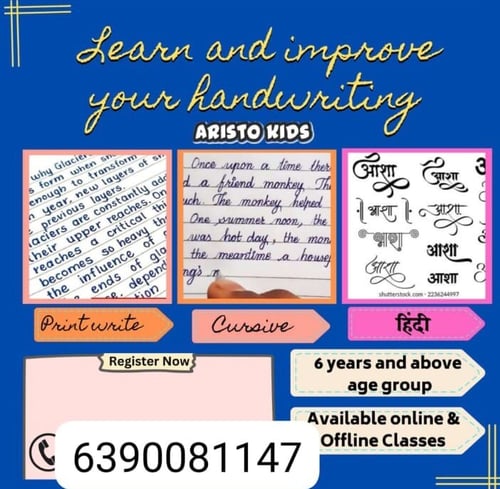 Learn and improve
your handwriting
ARISTO KIDS
why Glacier
s form when sn
enough to transform
year, new layers of s
previous layers.
aciers are constantly ad
their upper reaches, a
reaches a critical thi
becomes so heavy th
the influence of
ends of gla
depend
tion
Once upon a time ther
d a friend monkey. Th
uch. The monkey helped
One summer noon, the
was hot day, the mon
the meantime a house
ng's
आशा
आशा
आशा
आशा
आशा
आशा
आशा
आशा
shutterstock.com · 2236244997
Print write
Cursive
हिंदी
Register Now
6 years and above
age group
Available online &
Offline Classes
6390081147